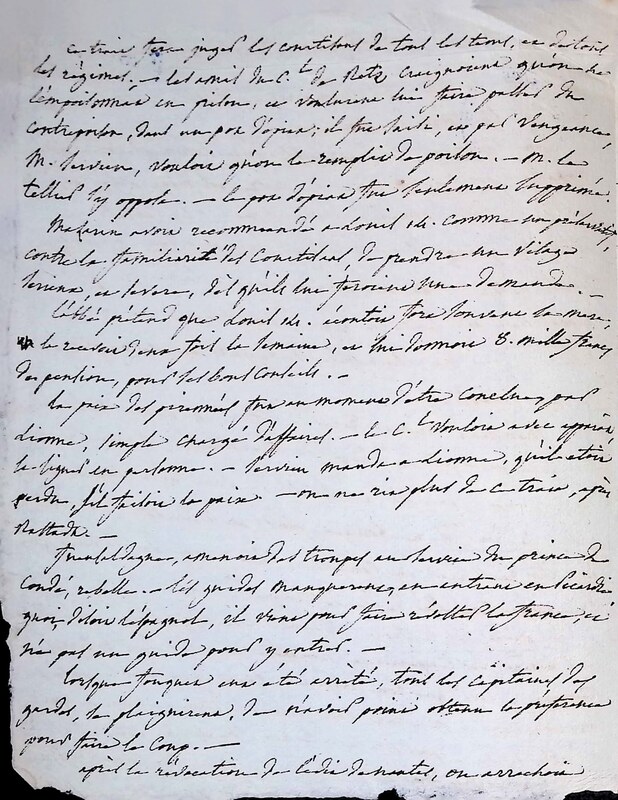 ce trait fera juger les courtisans de tous les tems, et de tous
les régimes. — les amis du C.l de Retz craignoient qu'on ne
l'empoisonnat en prison, et voulurent lui faire passer du
contrepoison, dans un pot d'opiat; il fut saisi, et par vengeance,
M. Servien, vouloit qu'on le remplit de poison. — M. le
tellier s'y opposa. — le pot d'opiat fut seulement supprimé.
Mazarin avoit recommandé a Louis 14. comme un préservatif,
contre la familiarité des Courtisans de prendre un visage
serieux, et severe, dès qu'ils lui feroient une demande. —
l'abbé prétend que Louis 14. écoutoit fort souvent sa mere,
la recevoit deux fois la semaine, et lui donnoit 8. mille francs
de pension, pour ses bons conseils. —
la paix des pirennées fut au moment d'être conclue, par
Lionne, simple chargé d'affaires. — le C.l vouloit avec
la signer en personne. — Servien manda a Lionne, qu'il etoit
perdu, s'il faisoit la paix. — on ne rit plus de ce trait, après
Rastadt. —
fuensaldagne, amenoit des troupes au service du prince de
Condé, rebelle. — les guides manquerent, en entrant en Picardie
quoi, disoit l'espagnol, il vient pour faire révolter la france, et
n'a pas un guide pour y entrer. —
lorsque fouquet eut été arrêté, tous les capitaines des
gardes, se plaignirent, de n'avoir point obtenu la préférence
pour faire le coup. —
après la révocation de l'édit de nantes, on arrachoit